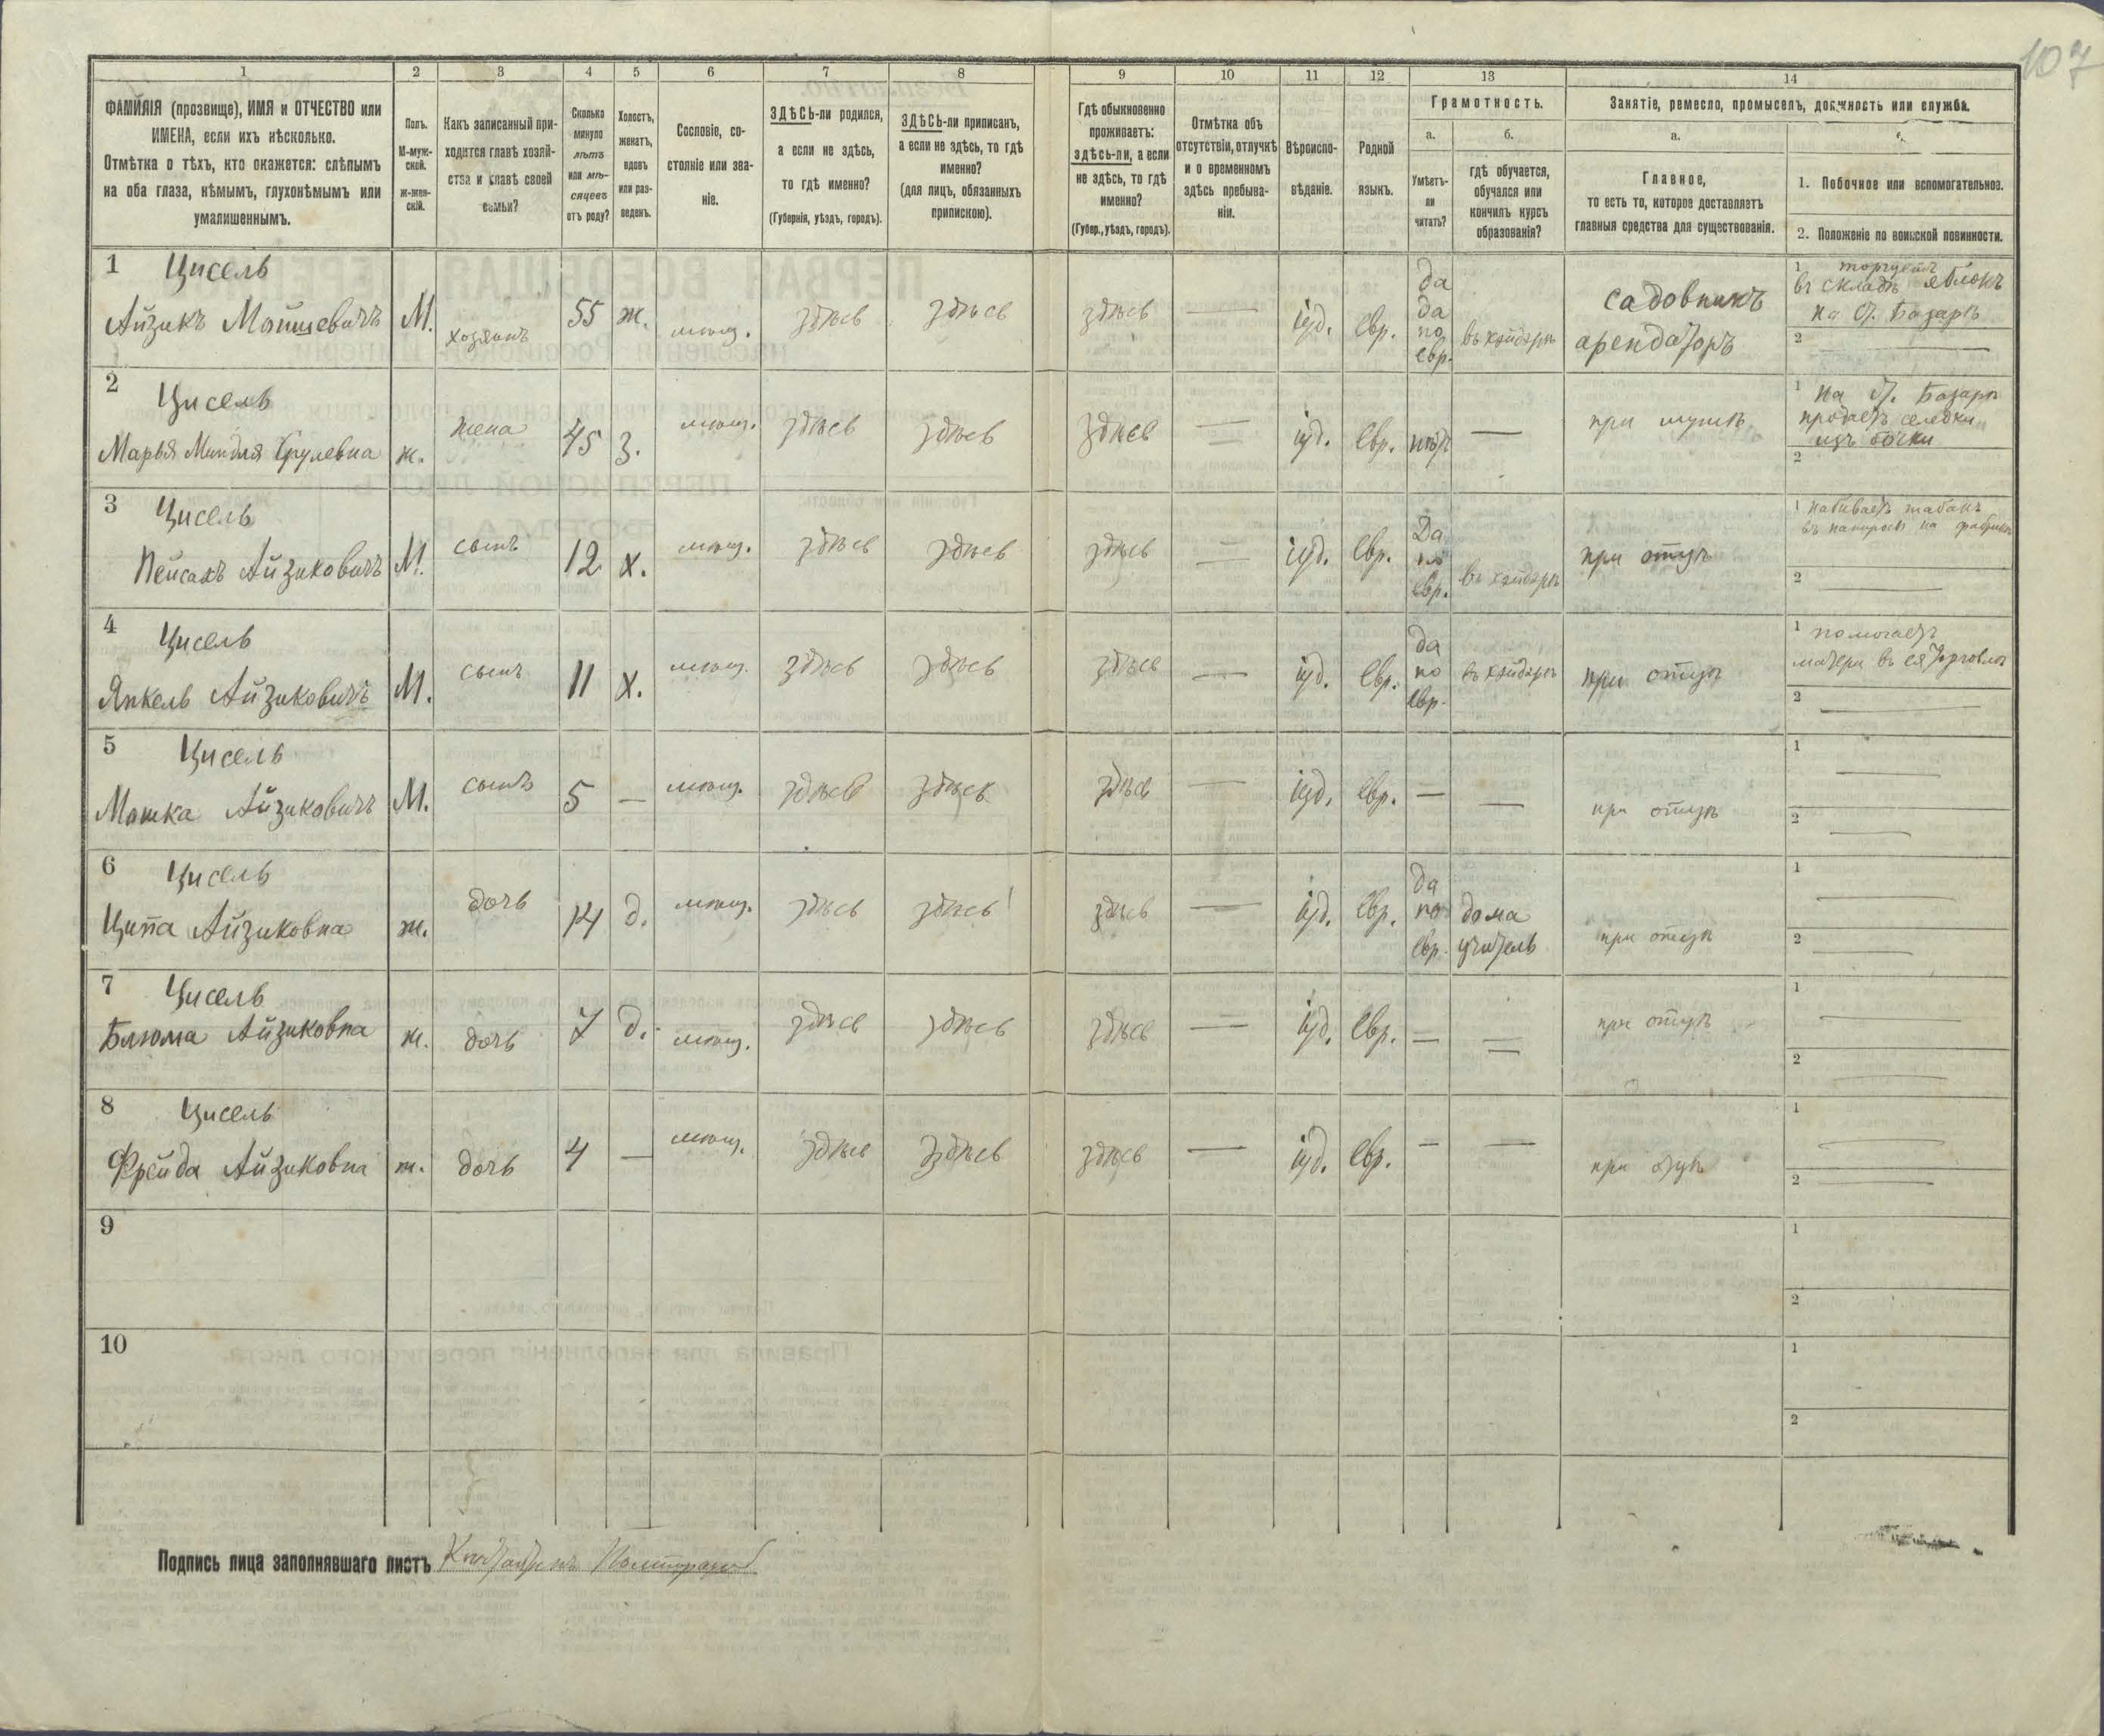 107
1 2 3 4 5 6 7 8 9 10 11 12 13 14
ФАМИЛІЯ (прозвище), ИМЯ и ОТЧЕСТВО или
ИМЕНА, если ихъ нѣсколько.
Отмѣтка о тѣхъ, кто окажется: слѣпымъ
на оба глаза, нѣмымъ, глухонѣмымъ или
умалишеннымъ.
Полъ.
М-муж-
ской.
ж-жен-
скій.
Какъ записанный при-
ходится главѣ хозяй-
ства и главѣ своей
семьи?
Сколько
минуло
лѣтъ
или мѣ-
сяцевъ
отъ роду?
Холостъ,
женатъ,
вдовъ
или раз-
веденъ.
Сословіе, со-
стояніе или зва-
ніе.
ЗДѢСЬ-ли родился,
а если не здѣсь,
то гдѣ именно?
(Губернія, уѣздъ, городъ).
ЗДѢСЬ-ли приписанъ,
а если не здѣсь, то гдѣ
именно?
(для лицъ, обязанныхъ
припискою).
Гдѣ обыкновенно
проживаетъ:
здѣсь-ли, а если
не здѣсь, то гдѣ
именно?
(Губер., уѣздъ, городъ).
Отмѣтка объ
отсутствіи, отлучкѣ
и о временномъ
здѣсь пребыва-
ніи.
Вѣроиспо-
вѣданіе.
Родной
языкъ.
Грамотность.
а.
Умѣетъ-
ли
читать?
б.
гдѣ обучается,
обучался или
кончилъ курсъ
образованія?
Занятіе, ремесло, промыселъ, должность или служба.
а.
Главное,
то есть то, которое доставляетъ
главныя средства для существованія.
1. Побочное или вспомогательное.
2. Положеніе по воинской повинности.
1 Цисель
Айзикъ Мошевичъ М. хозяинъ 55 ж. мѣщ. здѣсь здѣсь здѣсь — іуд. евр.
да
да
по
евр.
въ хэйдэрѣ
садовникъ
арендаторъ
1 торгуетъ
въ складѣ яблокъ
на Базарѣ
2 —
2 Цисель
Марья Миндля Срулевна ж. жена 45 З. мѣщ. здѣсь здѣсь здѣсь — іуд. евр. нѣтъ — при мужѣ
1 на Базарѣ
продаетъ селедки
изъ бочки
2
3 Цисель
Пейсахъ Айзиковичъ М. сынъ 12 х. мѣщ. здѣсь здѣсь здѣсь — іуд. евр.
Да
по
евр.
въ хэйдэрѣ при отцѣ
1 набиваетъ табакъ
въ папиросы на фабрикѣ
2 —
4 Цисель
Янкель Айзиковичъ М. сынъ 11 х. мѣщ. здѣсь здѣсь здѣсь — іуд. евр.
да
по
евр.
въ хэйдэрѣ при отцѣ
1 помогаетъ
матери въ ея торговлѣ
2 —
5 Цисель
Мошка Айзиковичъ М. сынъ 5 — мѣщ. здѣсь здѣсь здѣсь — іуд. евр. — — при отцѣ
1 —
2 —
6 Цисель
Ципа Айзиковна ж. дочь 14 д. мѣщ. здѣсь здѣсь здѣсь — іуд. евр.
да
по
евр.
дома
учитель
при отцѣ
1 —
2 —
7 Цисель
Блюма Айзиковна ж. дочь 7 д. мѣщ. здѣсь здѣсь здѣсь — іуд. евр. — — при отцѣ
1 —
2 —
8 Цисель
Фрейда Айзиковна ж. дочь 4 — мѣщ. здѣсь здѣсь здѣсь — іуд. евр. — — при отцѣ
1 —
2 —
9
1
2
10
1
2
Подпись лица заполнявшаго листъ